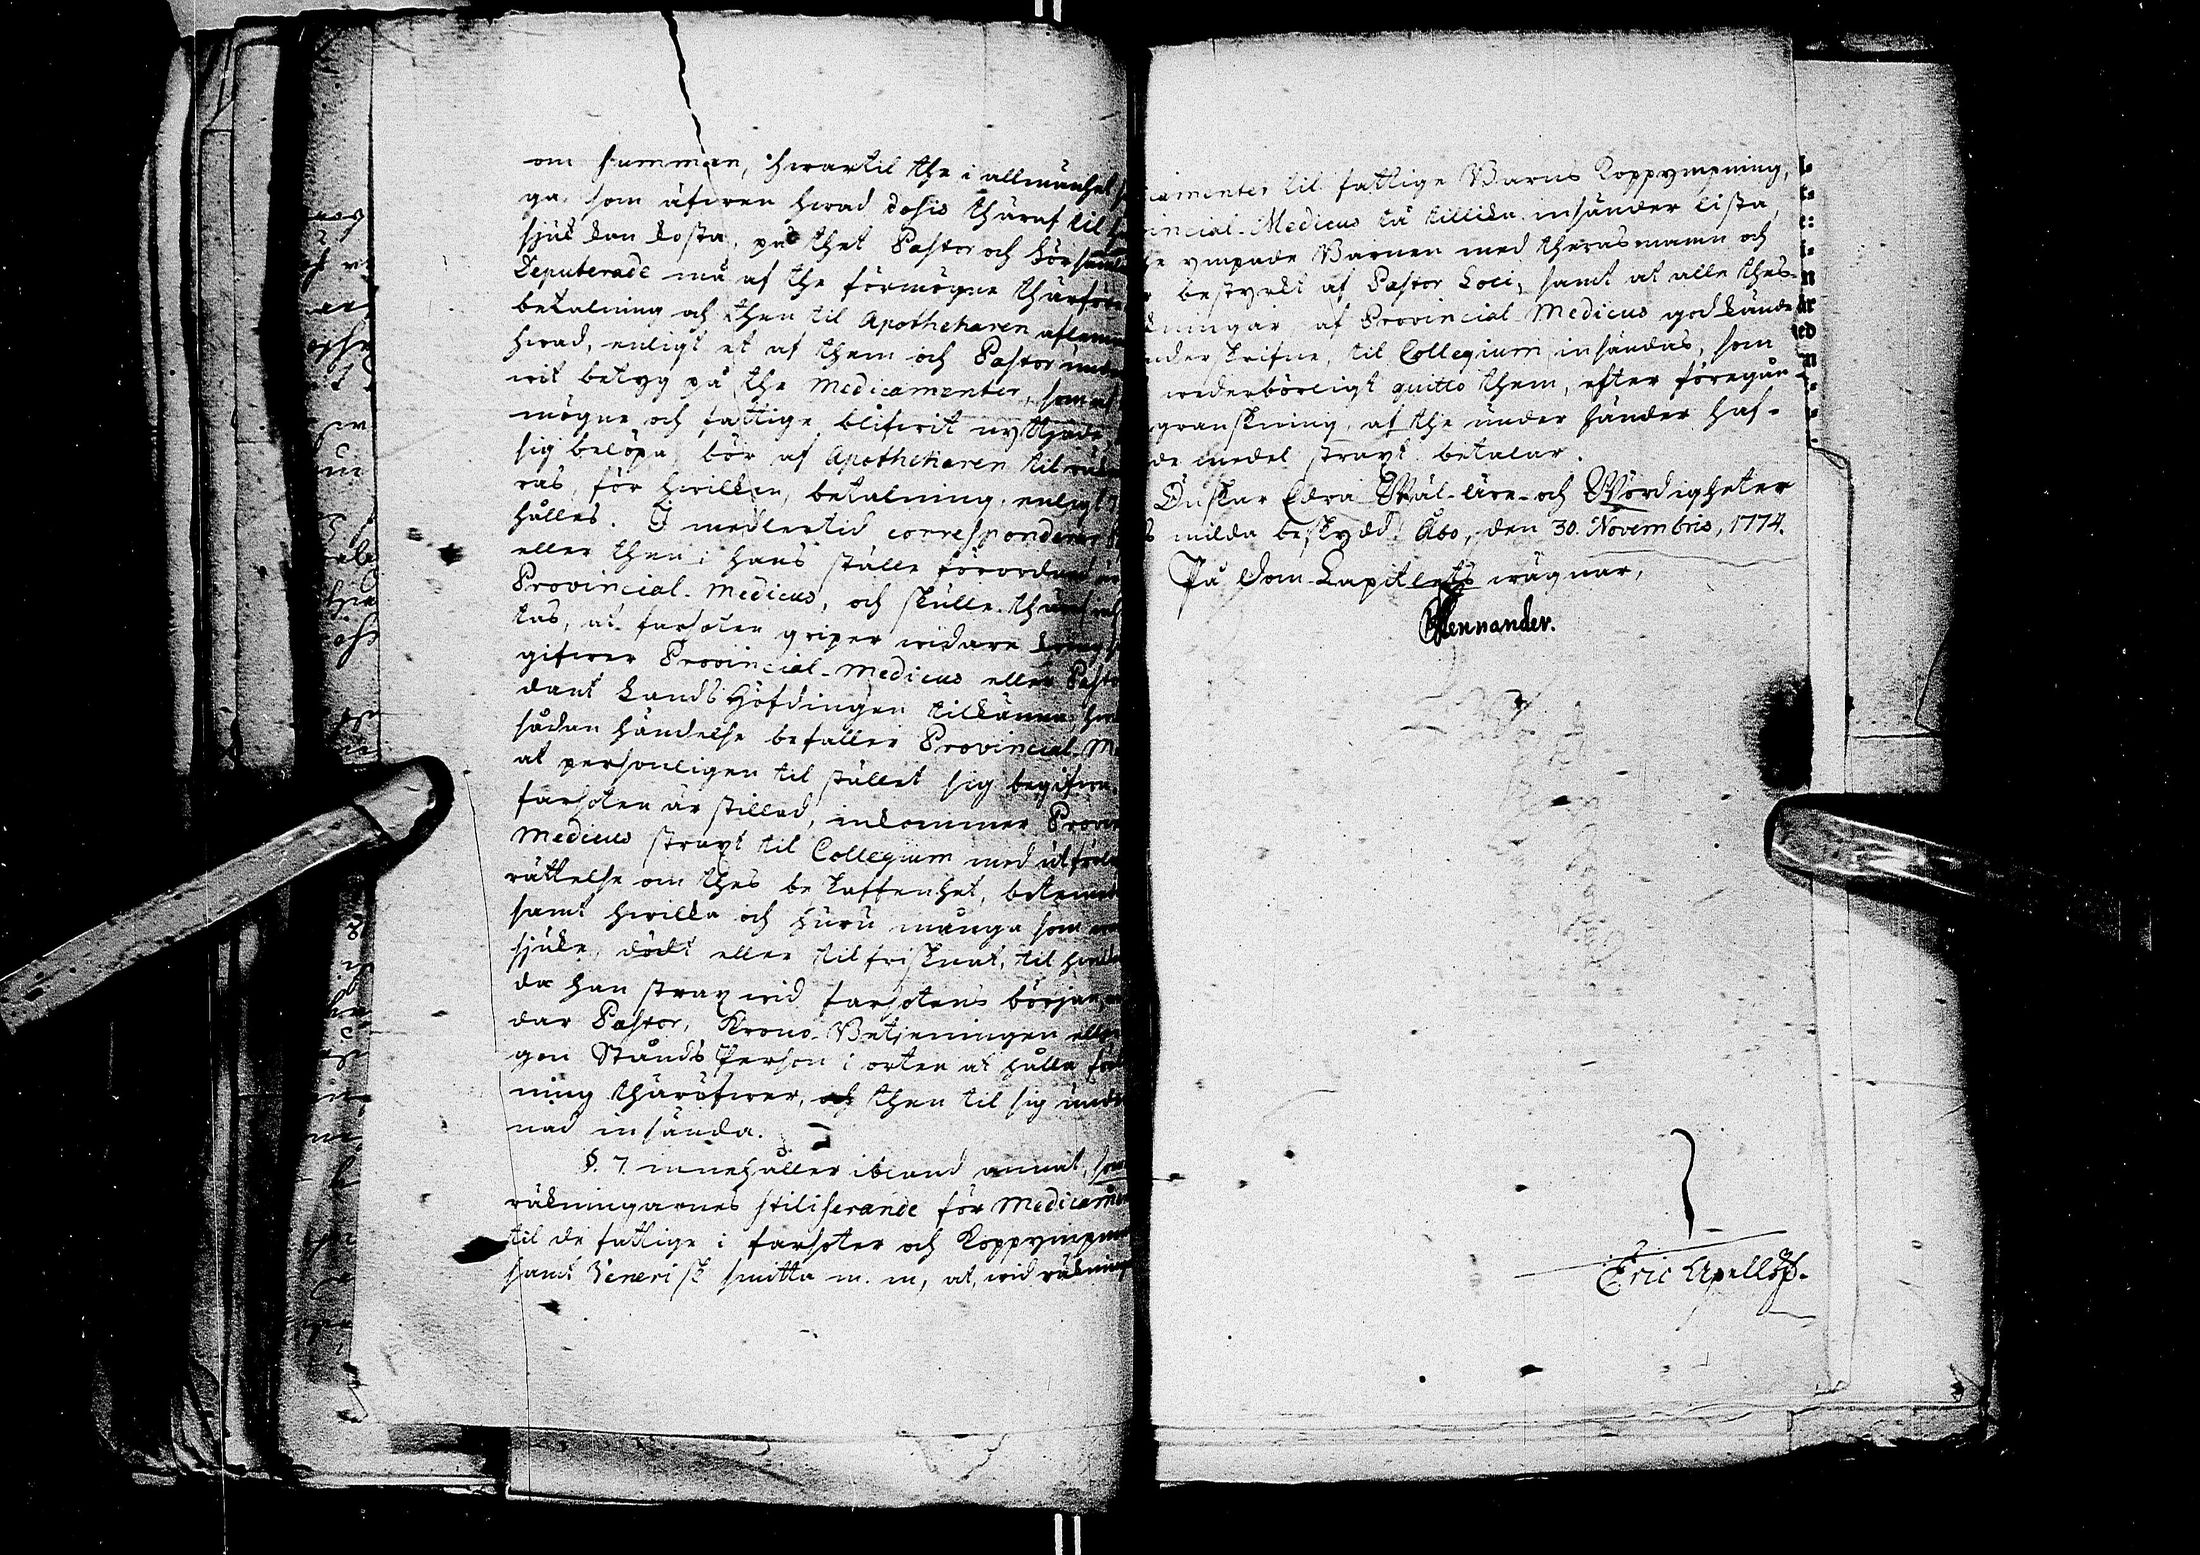 om summan, hwartil the i allmänhet
ga, som äfwen hwad dosis theraf til
sjuk kan kosta, på thet Pastor och Församl
Deputerade må af the förmögne therföre
betalning och then til Apothekaren aflemn
hwad, enligt et af them och Pastor under
wit betyg på the Medicamenter, som af
mögne och fattige blifwit nyttjade,
sig belöpa, bör af Apothekaren til räk
ras, för hwilken betalning, enligt
hålles. I medlertid corresponderar
eller then i hans ställe förordnad är
Provincial-Medicus, och skulle thärest
tas, at farsoten griper widare kring
gifwer Provincial-Medicus eller Pasto
dant LandsHöfdingen tilkänna, hw
sådan händelse befaller Provincial-M
at personligen til stället sig begifwa.
farsoten är stillad, inkommer Provin
Medicus straxt til Collegium med utförl
rättelse om thes beskaffenhet, botemed
samt hwilka och huru många som
sjuke, dödt eller tilfrisknat, til hwilk
da han strax wid farsotens början,
dar Pastor, Krono-Betjeningen elle
gon StåndsPerson i orten at hålla för
ning thäröfwer, och then til sig
nad insända.
§. 7. innehåller ibland annat, som
räkningarnes stiliserande för Medicamen
til de fattige i farsoter och Koppympni
samt Venerisk smitta m. m, at, wid räkning
icamenter til fattige Barns Koppympning,
vincial-Medicus tå tillika insänder lista,
the ympade Barnen med theras namn och
bestyrkt af Pastor Loci, samt at alla thes-
kningar, af Provincial-Medicus godkände
nderskrifne, til Collegium insändas, som
wederbörligt quitto them, efter föregån-
granskning, af the under händer haf-
de medel straxt betalar.
Önskar Edra Wäl-äre- och Wördigheter
s milda beskydd. Åbo, den 30. Novembris, 1774.
På Dom-Capitlets wägnar,
Mennander.
Eric Apelloff.